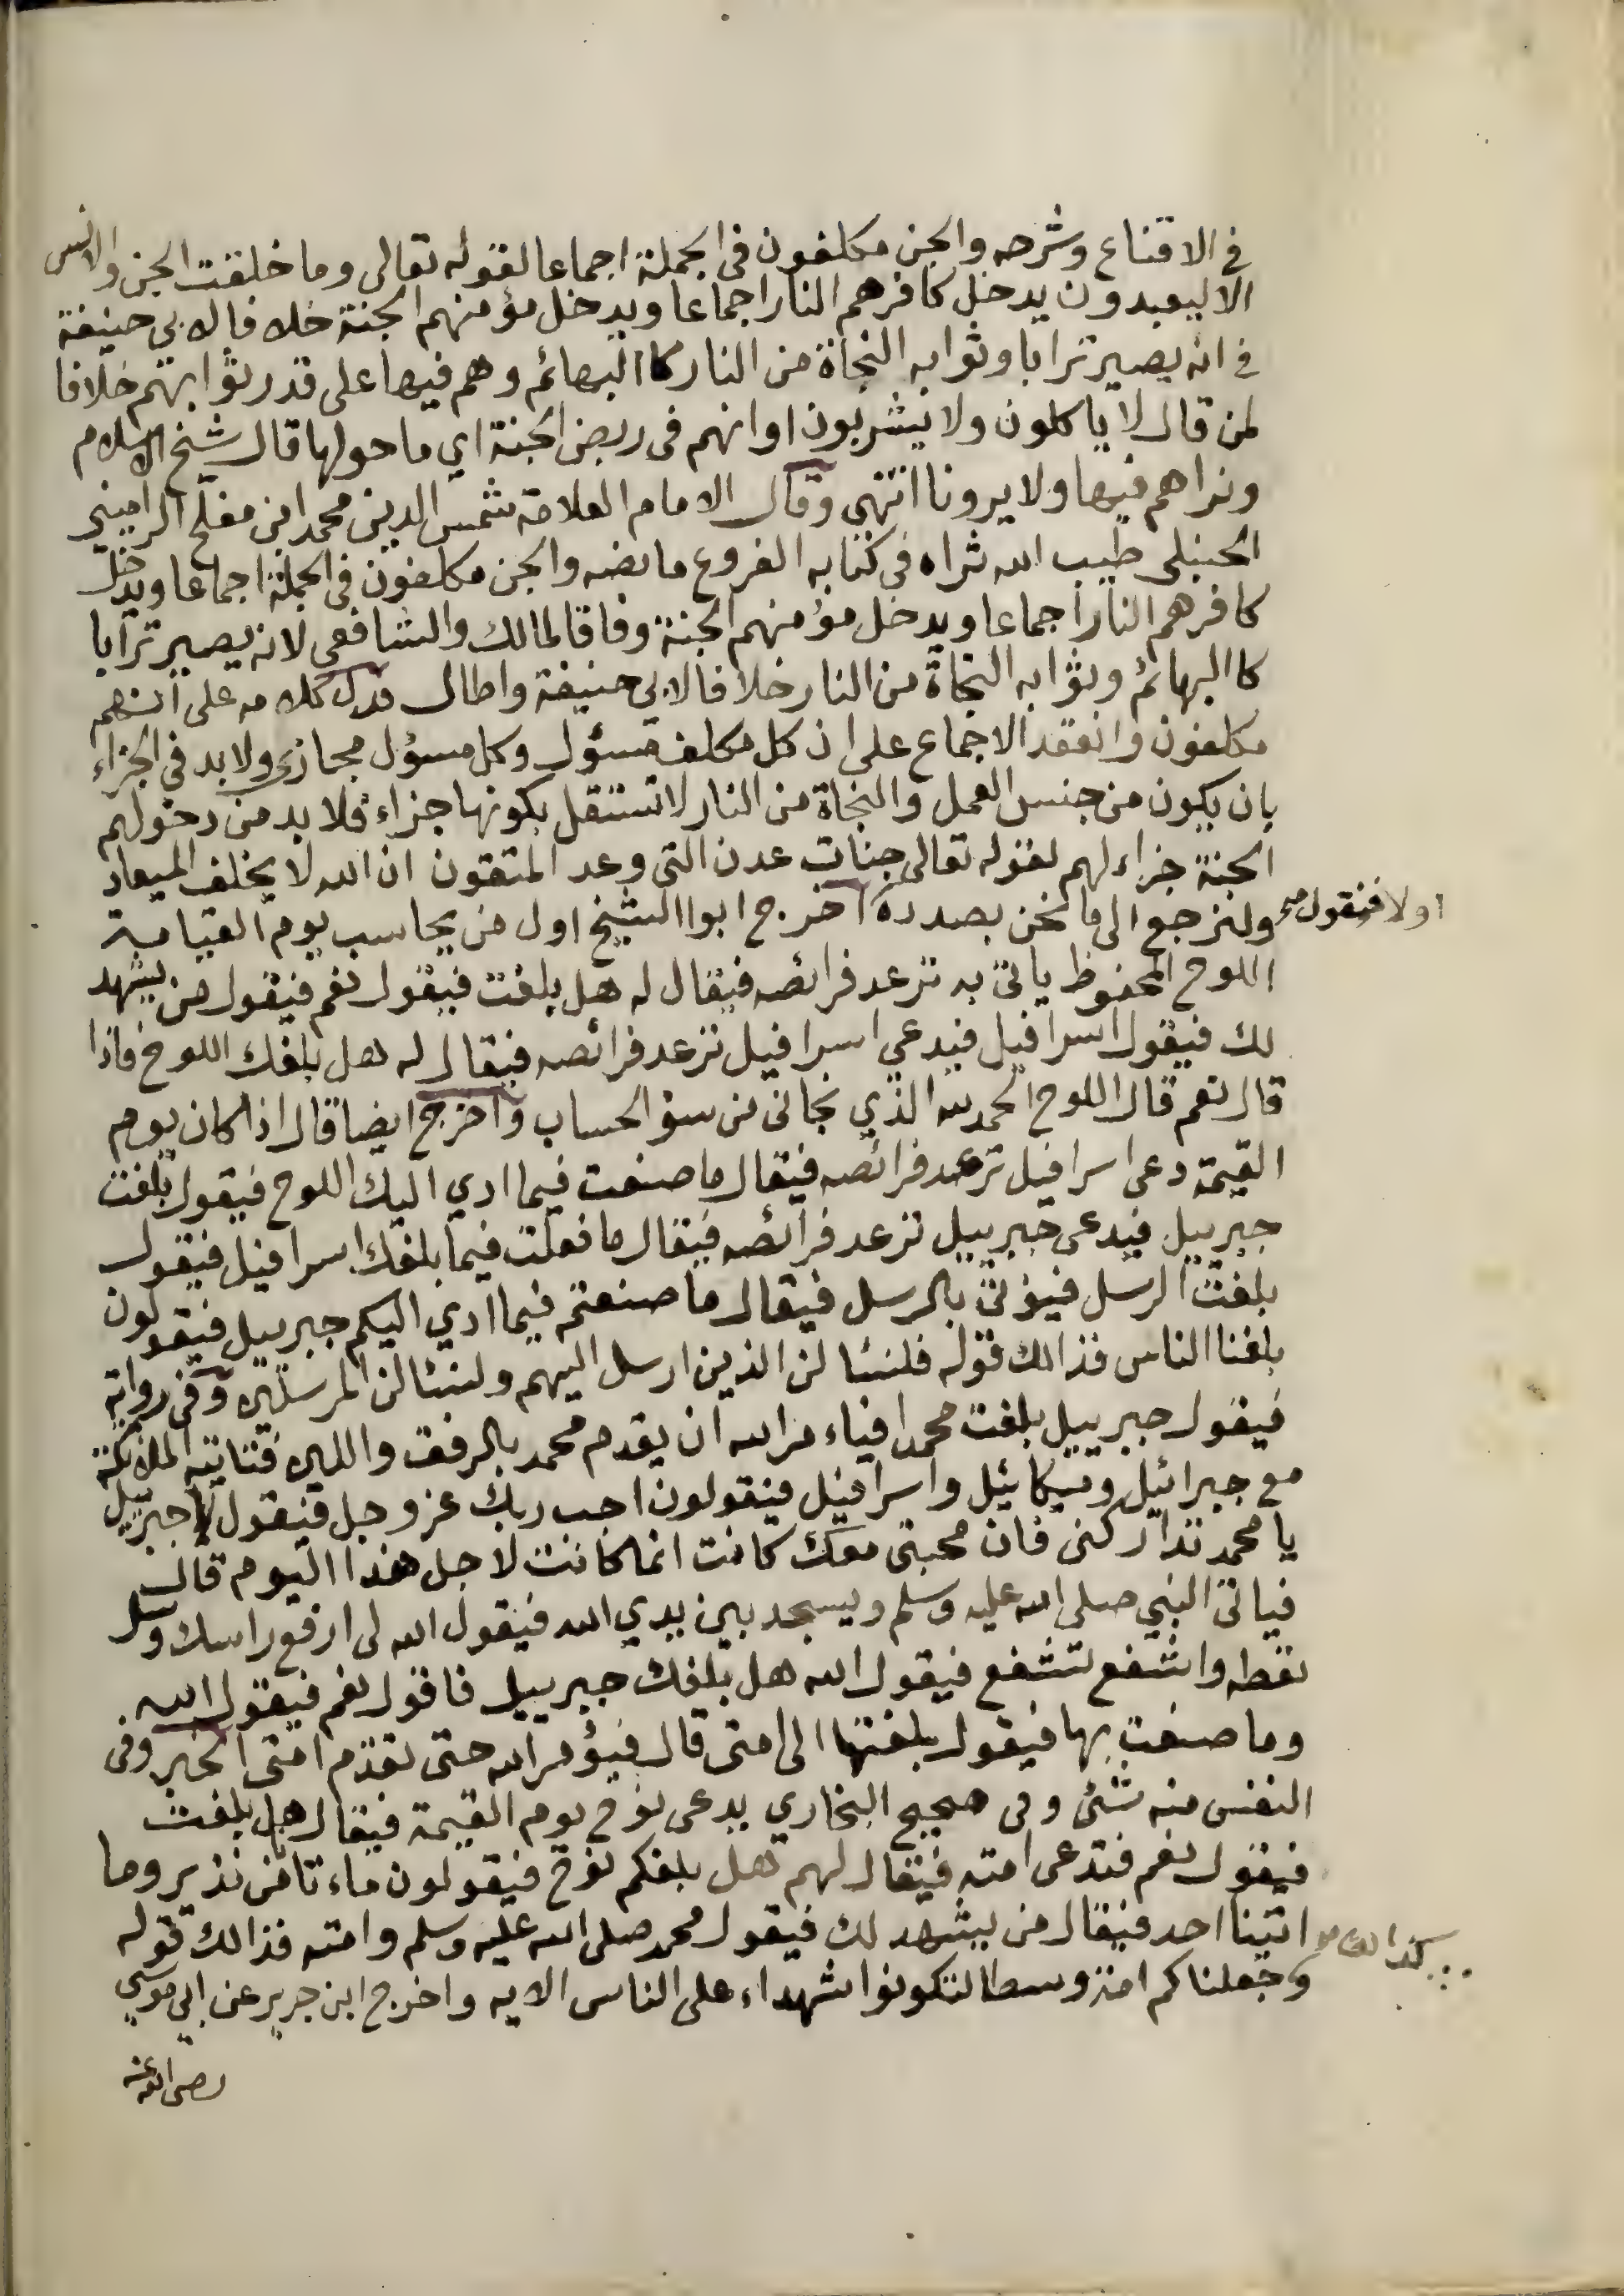 في الاقناع وشرحه والجن مكلفون في الجملة اجماعا لقوله تعالى وما خلقت الجن والانس
الا ليعبدون يدخل كافرهم النار اجماعا ويدخل مؤمنهم الجنة خلافا لابي حنيفة
في انه يصير ترابا وثوابه النجاة من النار كاالبهائم وهم فيها على قدر ثوابهم خلافا
لمن قال لا ياكلون ولا يشربون او انهم في ربض الجنة اي ما حولها قال شيخ الاسلام
ونراهم فيها ولا يرونا انتهى وقال الامام العلامة شمس الدين محمد ابن مفلح الراميني
الحنبلي طيب الله ثراه في كتابه الفروع ما نصه والجن مكلفون في الجملة اجماعا ويدخل
كافرهم النار اجماعا ويدخل مؤمنهم الجنة وفاقا لمالك والشافعي لانه يصير ترابا
كاالبهائم وثوابه النجاة من النار خلافا لابي حنيفة واطال فدل كلامه على انهم
مكلفون وانعقد الاجماع على ان كل مكلف مسؤل وكل مسؤل مجازى ولا بد في الجزاء
بان يكون من جنس العمل والنجاة من النار لا تستقل بكونها جزاء فلا بد من دخولهم
الجنة جزاء لهم لقوله تعالى جنات عدن التي وعد المتقون ان الله لا يخلف الميعاد
ولنرجع الى ما نحن بصدده اخرج ابوا الشيخ اول من يحاسب يوم القيامة
اولا فنقول صح
اللوح المحفوظ ياتى به ترعد فرائصه فيقال له هل بلغت فيقول نعم فيقول من يشهد
لك فيقول اسرافيل فيدعي اسرافيل ترعد فرائصه فيقال له هل بلغك اللوح فاذا
قال نعم قال اللوح الحمد لله الذي نجاني من سؤ الحساب واخرج ايضا قال اذا كان يوم
القيمة دعى اسرافيل ترعد فرائصه فيقال ما صنعت فيما ادي اليك اللوح فيقول بلغت
جبرييل فيدعى جبرييل ترعد فرائصه فيقال ما فعلت فيما بلغك اسرافيل فيقول
بلغت الرسل فيؤتى بالرسل فيقال ما صنعتم فيما ادي اليكم جبرييل فيقولون
بلغنا الناس فذالك قوله فلنسئالن الذين ارسل اليهم ولنسئالن المرسلين وفي رواية
فيقول جبرييل بلغت محمدا فياء مر الله ان يقدم محمد بالرفق واللين فتاتيه الملائكة
مع جبرائيل وميكائيل واسرافيل فيقولون اجب ربك عز وجل فيقول جبرييل
يا محمد تداركني فان محبتي معك كانت انما كانت لاجل هذا اليوم قال
فياتى النبي صلى الله عليه وسلم ويسجد بين يدي الله فيقول الله لي ارفع راسك وسل
تعطه واشفع تشفع فيقول الله هل بلغك جبرييل فاقول نعم فيقول الله
وما صنعت بها فيقول بلغتها الى امتى قال فيؤمر الله حتى تقدم امتي الخبر وفي
النفس منه شئ وفي صحيح البخاري يدعى نوح يوم القيمة فيقال هل بلغت
فيقول نعم فتدعى امته فيقال لهم هل بلغكم نوح فيقولون ماء تانا من نذير وما
اتينا احد فيقال من يشهد لك فيقول محمد صلى الله عليه وسلم وامته فذالك قوله
كذالك
وجعلناكم امة وسطا لتكونوا شهداء على الناس الايه واخرج ابن جرير عن ابي موسي
رضى الله عنه